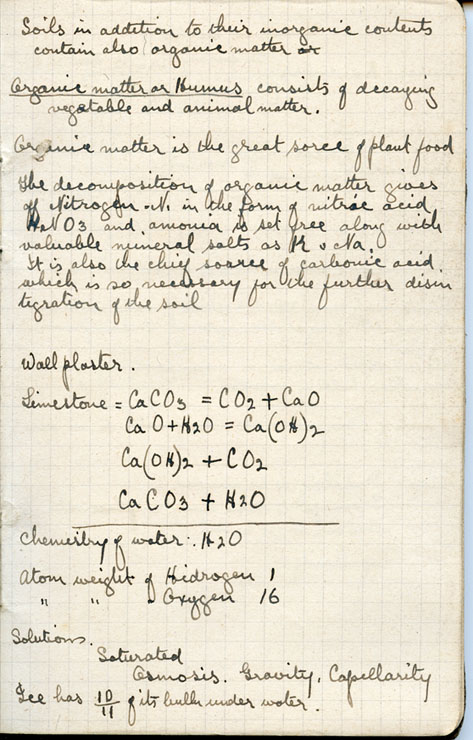 Soils in addition to their inorganic contents
contain also organic matter or
Organic matter or Humus consists of decaying
vegetable and animal matter.
Organic matter is the great sorce of plant food
The decomposition of organic matter gives
off Nitrogen N. in the form of nitric acid
HNO3 and amonia is set free along with
valuable mineral salts as K & Na.
It is also the chief source of carbonic acid
which is so necessary for the further disin
tigration of the soil
Wall plaster.
Limestone = CaCO3 = CO2 + CaO
CaO + H2O = Ca(OH)2
Ca(OH)2 + CO2
CaCO3 + H2O
Chemistry of water: H2O
Atom weight of Hidrogen 1
" " " Oxygen 16
Solutions.
Saturated
Osmosis. Gravity. Capellarity
Ice has 10/11 of its bulk under water.